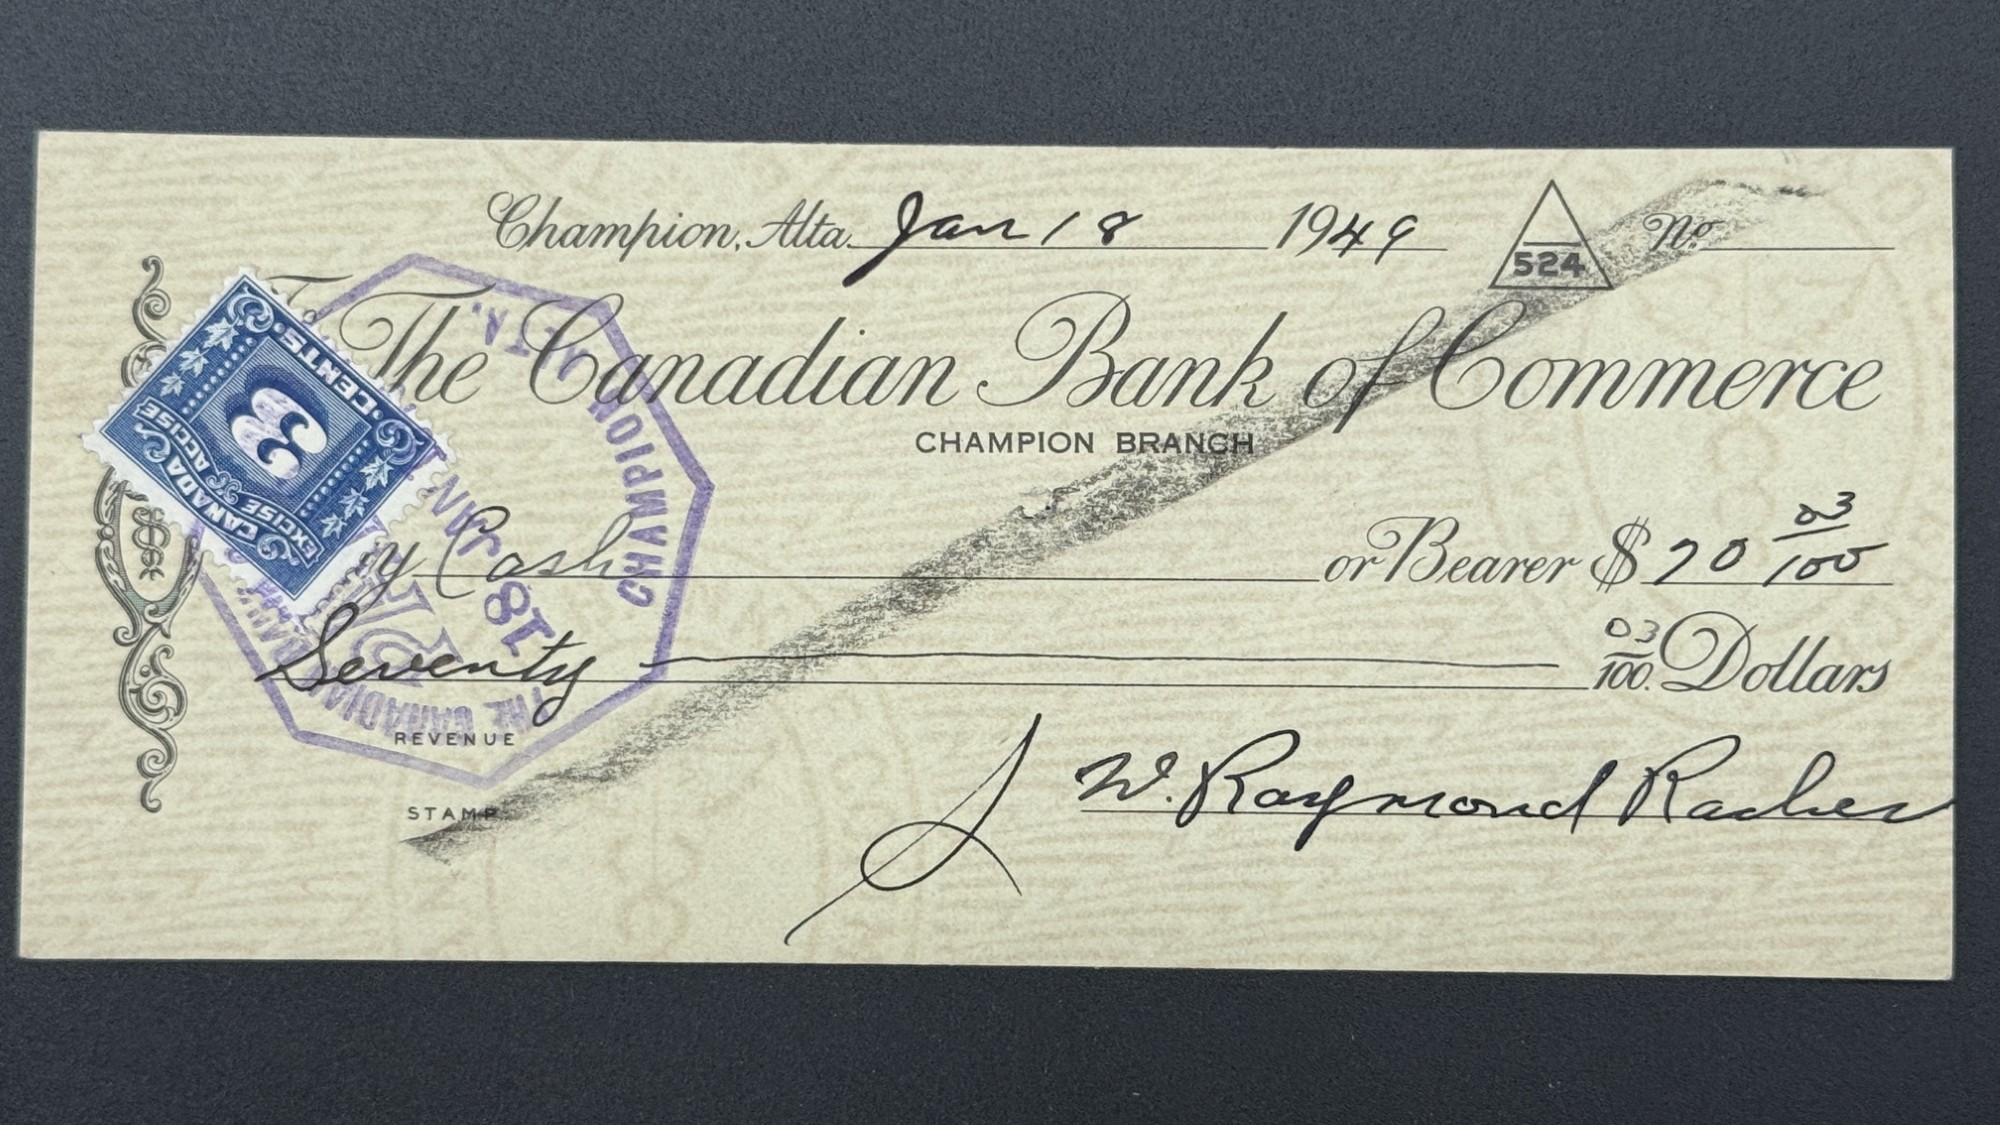 Champion, Alta. Jan 18 1949 No.
524
To The Canadian Bank of Commerce
CHAMPION BRANCH
y Cash or Bearer $ 70 03/100
Seventy 03/100 Dollars
REVENUE
STAMP
W. Raymond
3
CENTS
CANADA
EXCISE & ACCISE
CHAMPION ALTA.
JAN 18
THE CANADIAN